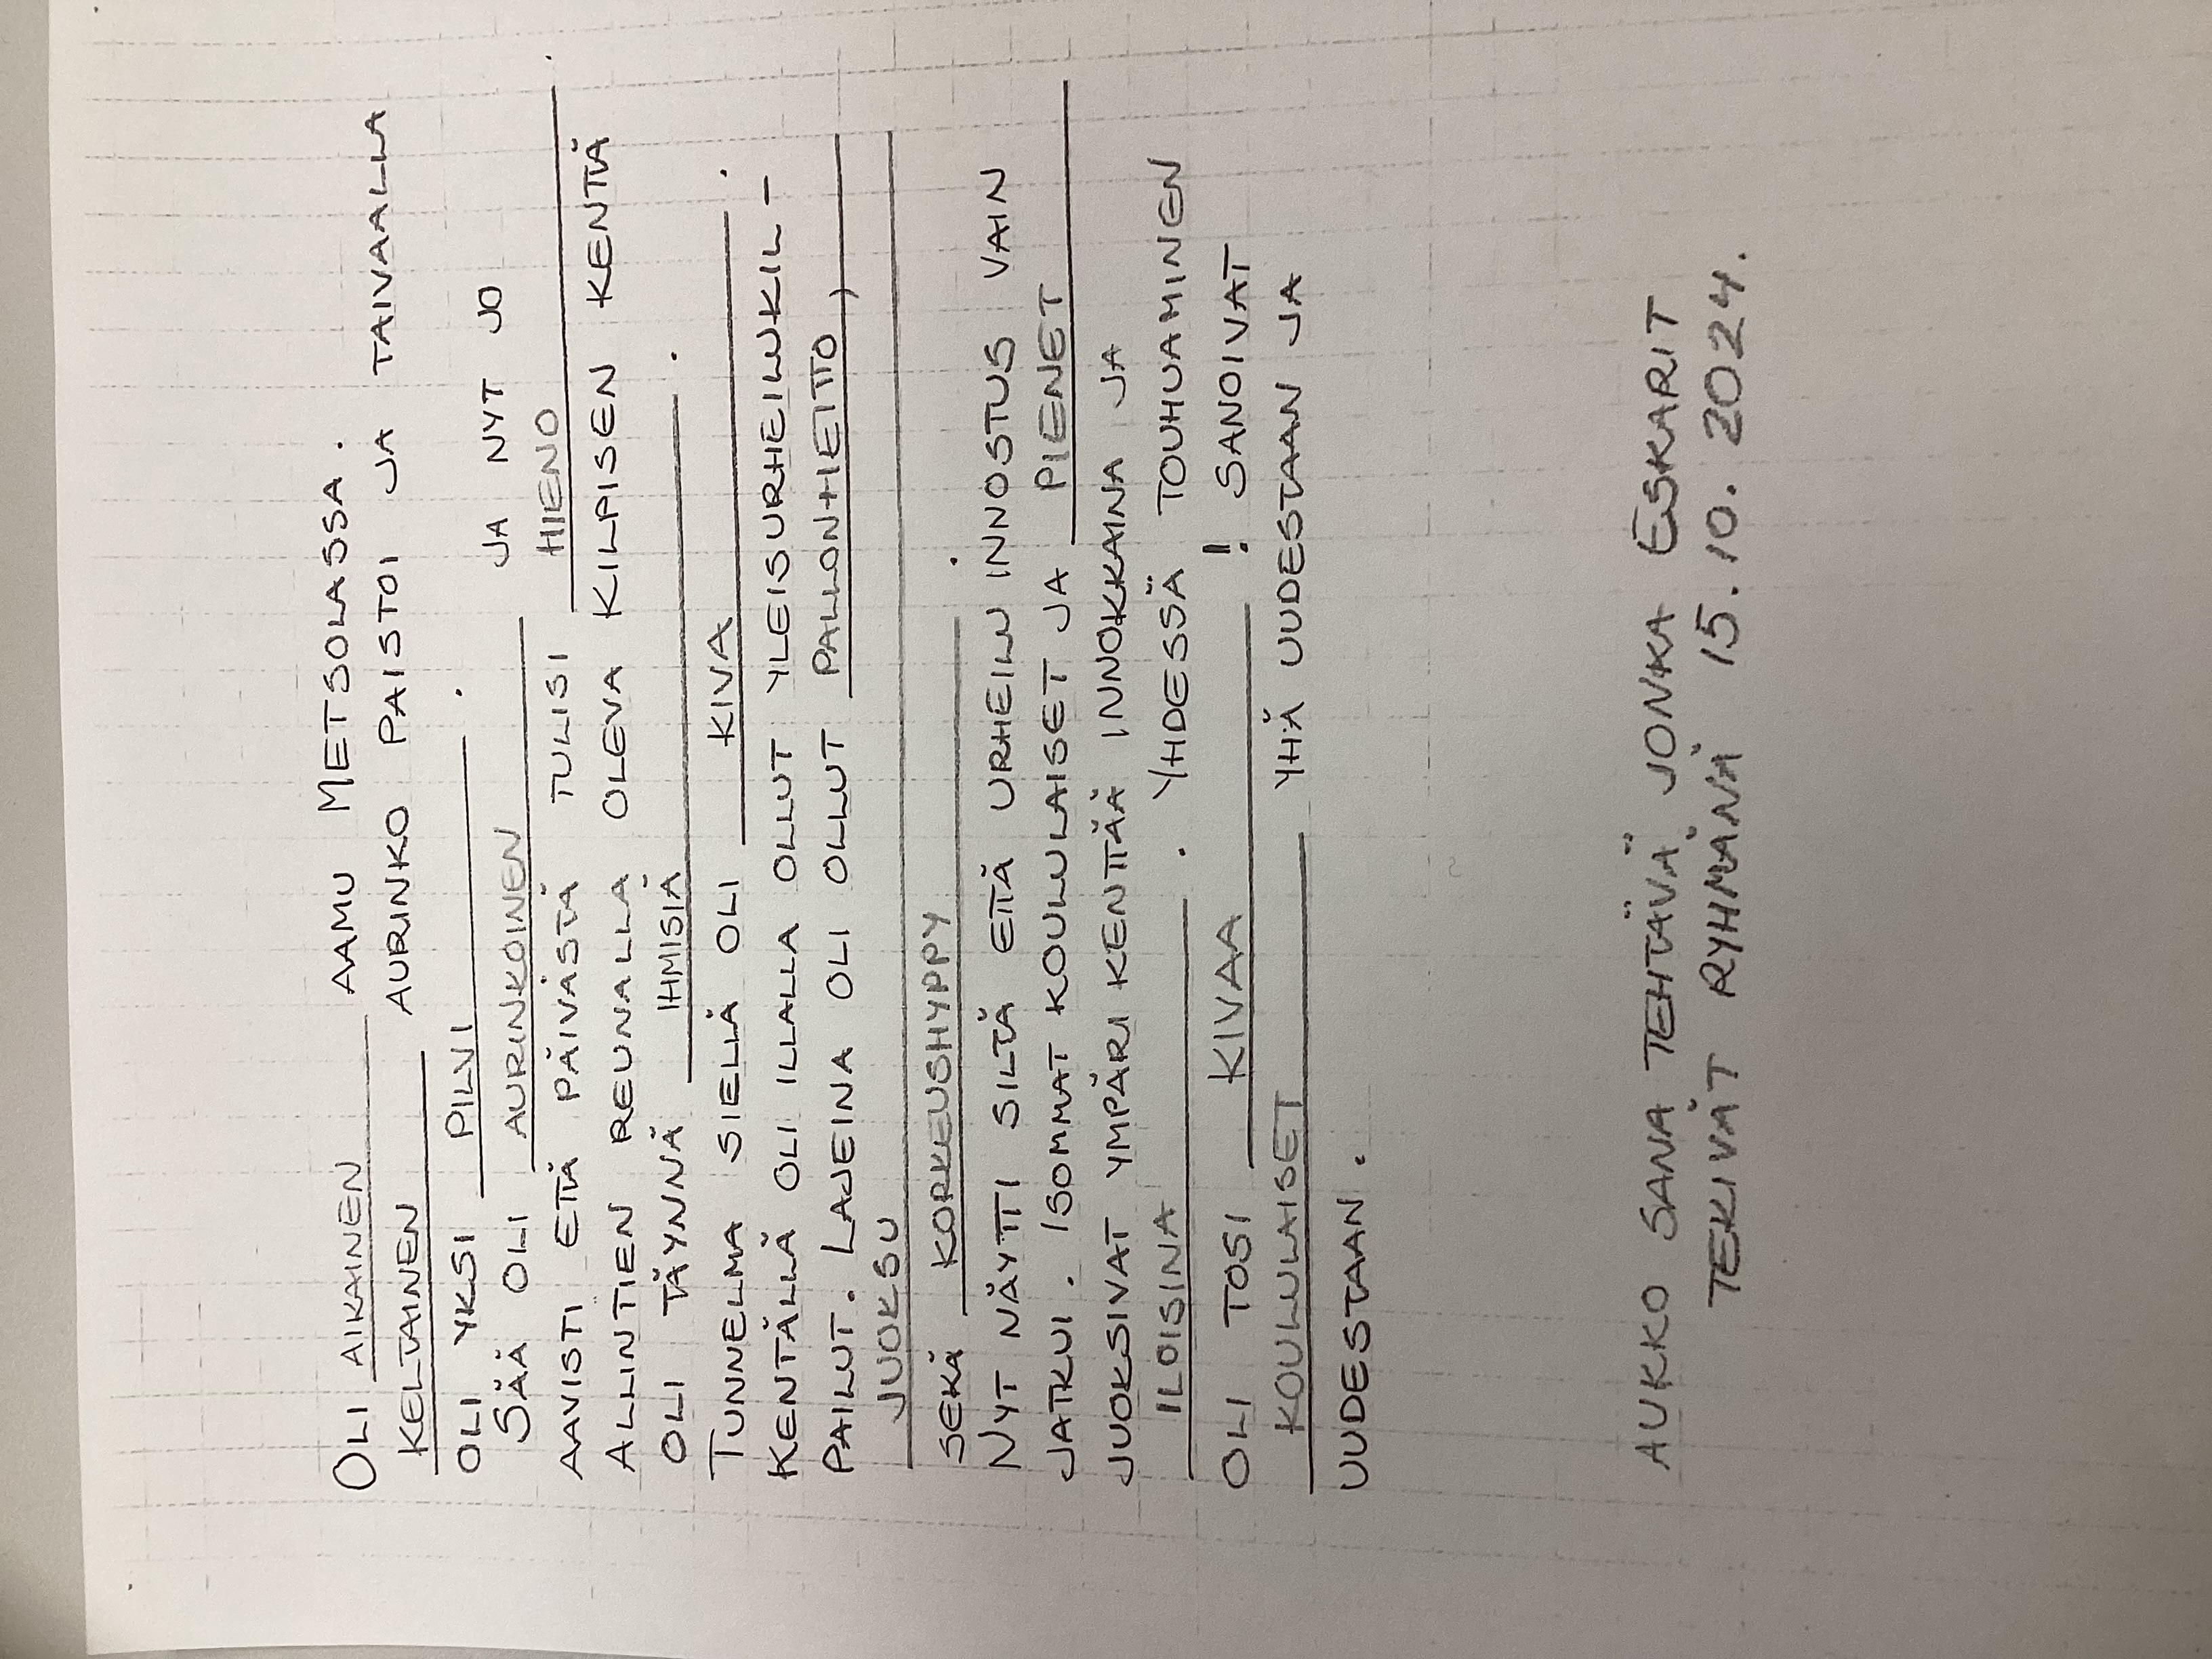 OLI AIKAINEN AAMU METSOLASSA.
KELTAINEN AURINKO PAISTOI JA TAIVAALLA
OLI YKSI PILVI.
SÄÄ OLI AURINKOINEN JA NYT JO
AAVISTI ETTÄ PÄIVÄSTÄ TULISI HIENO.
ALLINTIEN REUNALLA OLEVA KILPISEN KENTTÄ
OLI TÄYNNÄ IHMISIÄ.
TUNNELMA SIELLÄ OLI KIVA.
KENTÄLLÄ OLI ILLALLA OLLUT YLEISURHEILUKIL-
PAILUT. LAJEINA OLI OLLUT PALLONHEITTO,
JUOKSU
SEKÄ KORKEUSHYPPY.
NYT NÄYTTI SILTÄ ETTÄ URHEILU INNOSTUS VAIN
JATKUI. ISOMMAT KOULULAISET JA PIENET
JUOKSIVAT YMPÄRI KENTTÄÄ INNOKKAINA JA
ILOISINA. YHDESSÄ TOUHUAMINEN
OLI TOSI KIVAA! SANOIVAT
KOULULAISET YHÄ UUDESTAAN JA
UUDESTAAN.
AUKKO SANA TEHTÄVÄ JONKA ESKARIT
TEKIVÄT RYHMÄNÄ 15.10.2024.